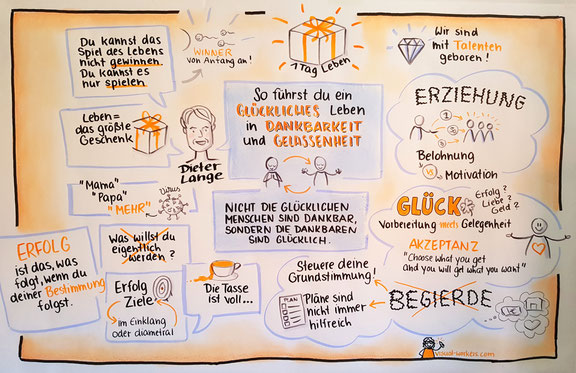 Du kannst das
Spiel des Lebens
nicht gewinnen.
Du kannst es
nur spielen
WINNER
von Anfang an!
1 Tag Leben
Wir sind
mit Talenten
geboren!
Leben =
das größte
Geschenk
Dieter
Lange
So führst du ein
GLÜCKLICHES Leben
in DANKBARKEIT
und GELASSENHEIT
ERZIEHUNG
1
2
3
Belohnung
vs
Motivation
"Mama"
"Papa"
"MEHR"
Virus
NICHT DIE GLÜCKLICHEN
MENSCHEN SIND DANKBAR,
SONDERN DIE DANKBAREN
SIND GLÜCKLICH.
GLÜCK
Erfolg?
Liebe?
Geld?
Vorbereitung meets Gelegenheit
AKZEPTANZ
"Choose what you get
and you will get what you want"
ERFOLG
ist das, was
folgt, wenn du
deiner Bestimmung
folgst.
Was willst du
eigentlich
werden?
Erfolg
Ziele
im Einklang
oder diametral
Die Tasse
ist voll...
Steuere deine
Grundstimmung!
PLAN
Pläne sind
nicht immer
hilfreich
BEGIERDE
visual-workers.com